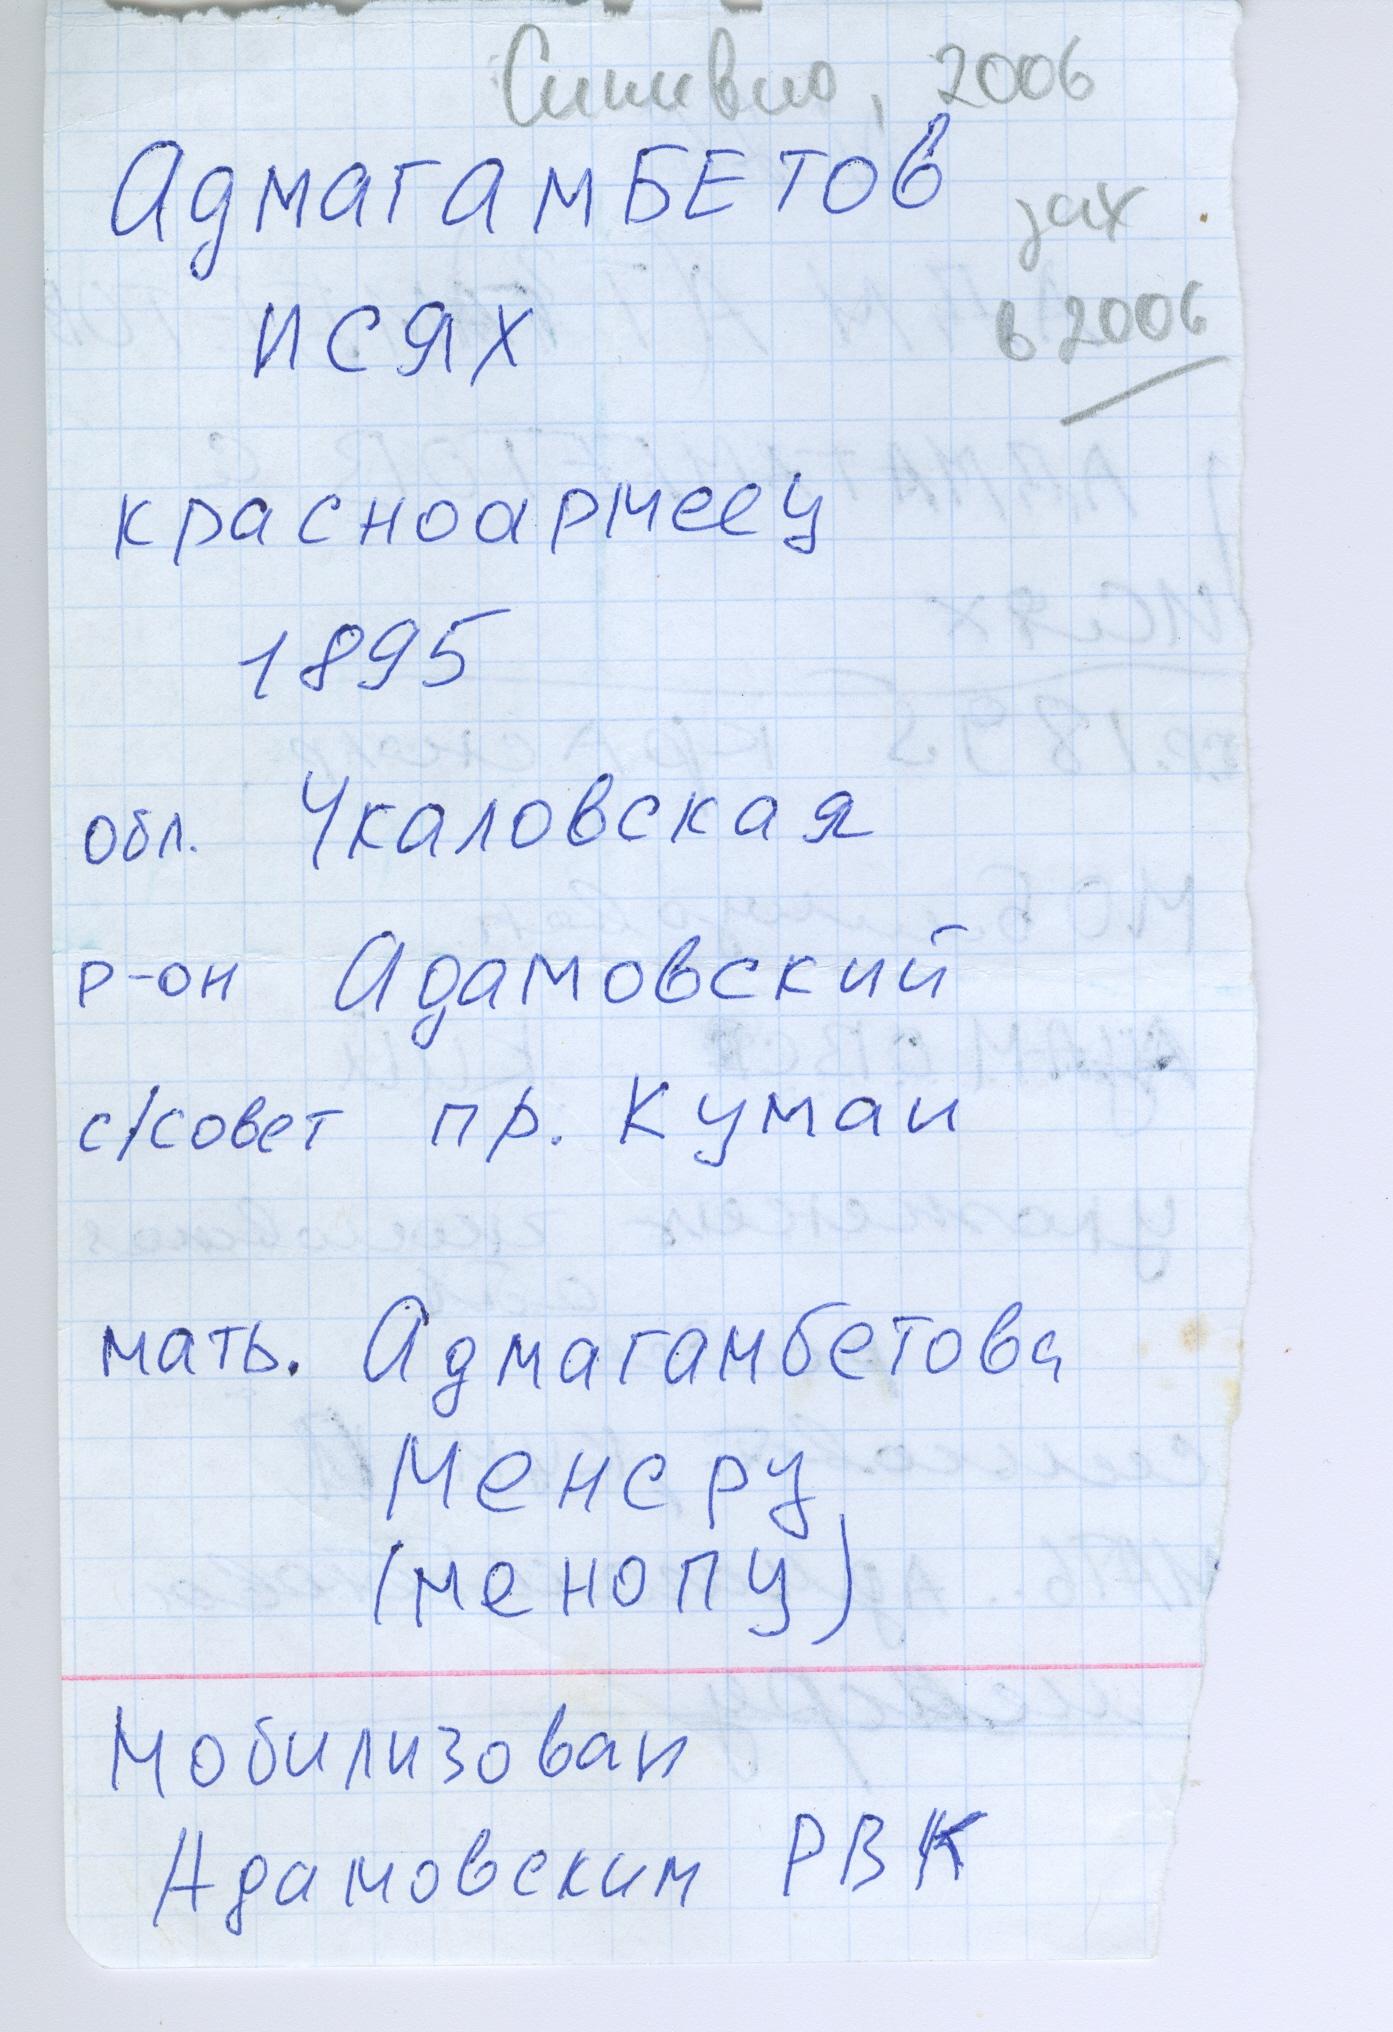 Синявино, 2006
Адмагамбетов
зах
исях
в 2006
красноармеец
1895
обл. Чкаловская
р-он Адамовский
с/совет пр. Кумаи
мать. Адмагамбетова
Менсру
(менопу)
Мобилизован
Адамовским РВК